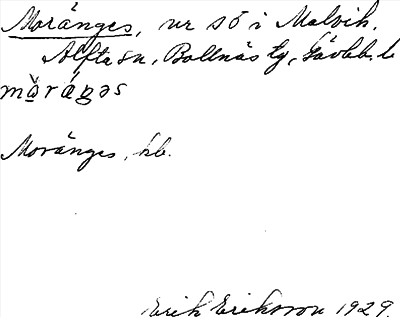 Moränges, nr sö i Malvik,
Alfta sn, Bollnäs tg, Gävleb. l.
Moränges, hb.
Erik Eriksson 1929.